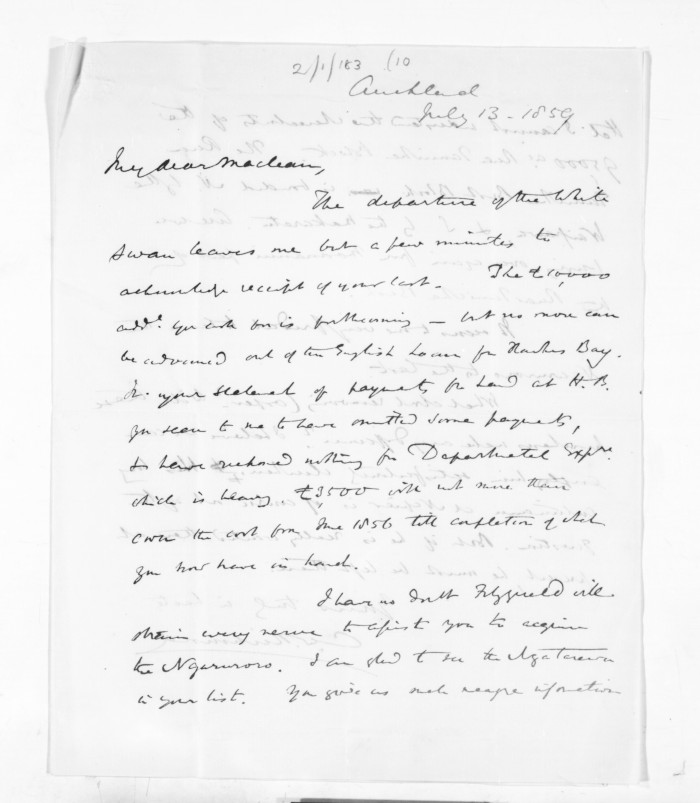 2/1/183 (10
Auckland
July 13 - 1859
My dear Maclean,
The departure of the White
Swan leaves me but a few minutes to
acknowledge receipt of your last. The £10,000
addl. you ask for is forthcoming — but no more can
be advanced out of the English Loan for Hawkes Bay.
In your statement of payments for land at H. B.
you seem to me to have omitted some payments,
& have reckoned nothing for Departmental Expre.
which is heavy. £3500 will not more than
cover the cost from June 1856 till completion of what
you now have in hand.
I have no doubt Fitzgerald will
strain every nerve to assist you to acquire
the Ngaruroro. I am glad to see the Ngatarawa
in your list. You give us such meagre information